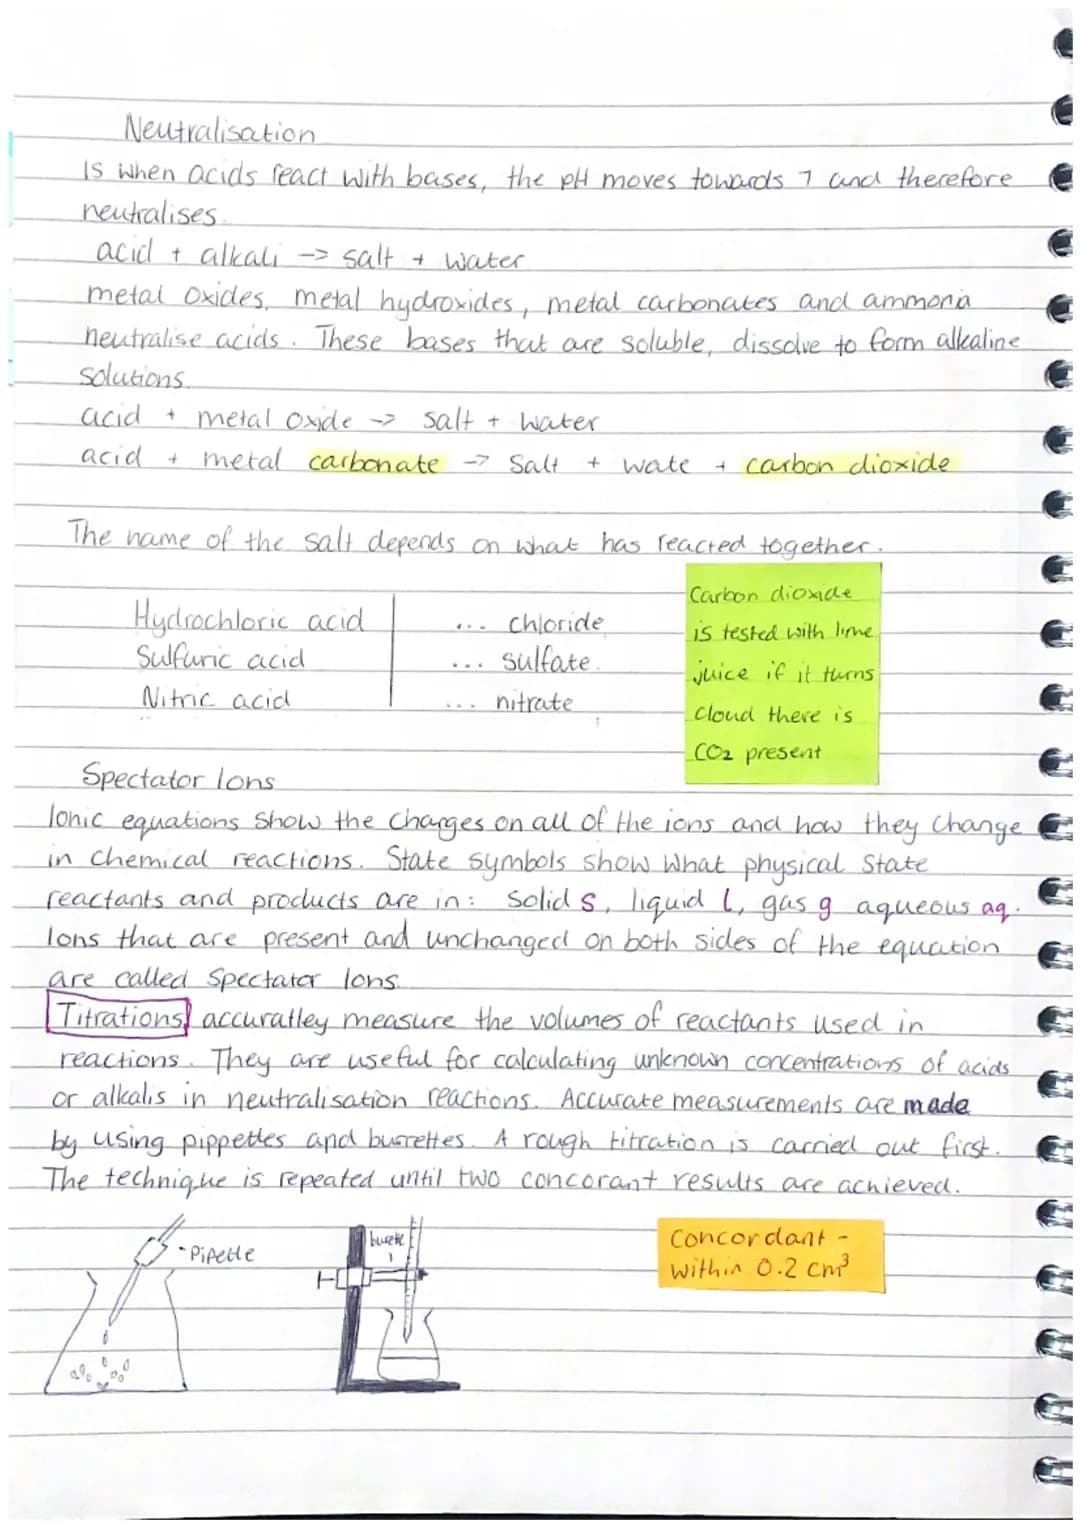 Neutralisation
Is when acids react with bases, the pH moves towards 7 and therefore
neutralises.
acid + alkali -> salt + water
metal oxides, metal hydroxides, metal carbonates and ammonia
neutralise acids. These bases that are soluble, dissolve to form alkaline
solutions.
acid + metal oxide -> salt + water
acid + metal carbonate -> salt + wate + carbon dioxide
The name of the salt depends on what has reacted together.
Hydrochloric acid ... chloride
Sulfuric acid ... sulfate.
Nitric acid ... nitrate
Carbon dioxide
is tested with lime
juice if it turns
cloud there is
CO2 present
Spectator Ions
Ionic equations show the charges on all of the ions and how they change
in chemical reactions. State symbols show what physical state
reactants and products are in: solid s, liquid l, gas g aqueous aq.
Ions that are present and unchanged on both sides of the equation
are called Spectator Ions.
Titrations accuratley measure the volumes of reactants used in
reactions. They are useful for calculating unknown concentrations of acids
or alkalis in neutralisation reactions. Accurate measurements are made
by using pippettes and burrettes. A rough titration is carried out first.
The technique is repeated until two concorant results are achieved.
Pipette
burette
Concordant -
within 0.2 cm³